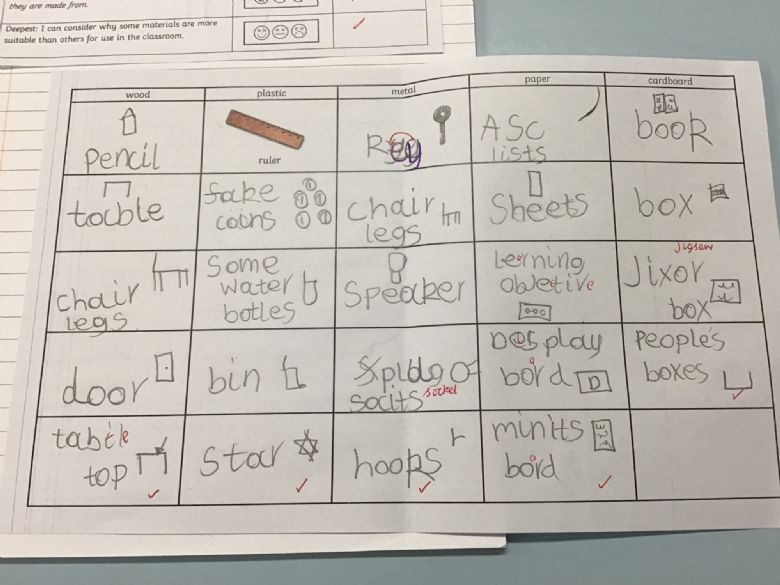 they are made from.
Deepest: I can consider why some materials are more
suitable than others for use in the classroom.
wood plastic metal paper cardboard
pencil
ruler
Key
ASC
lists
book
table
fake
coins
chair
legs
Sheets
box
chair
legs
Some
water
botles
Speaker
lerning
objective
jigsaw
Jixor
box
door
bin
socits
socket
Display
bord
a
PeoPle's
boxes
table
top
Star
hoops
minits
bord
a